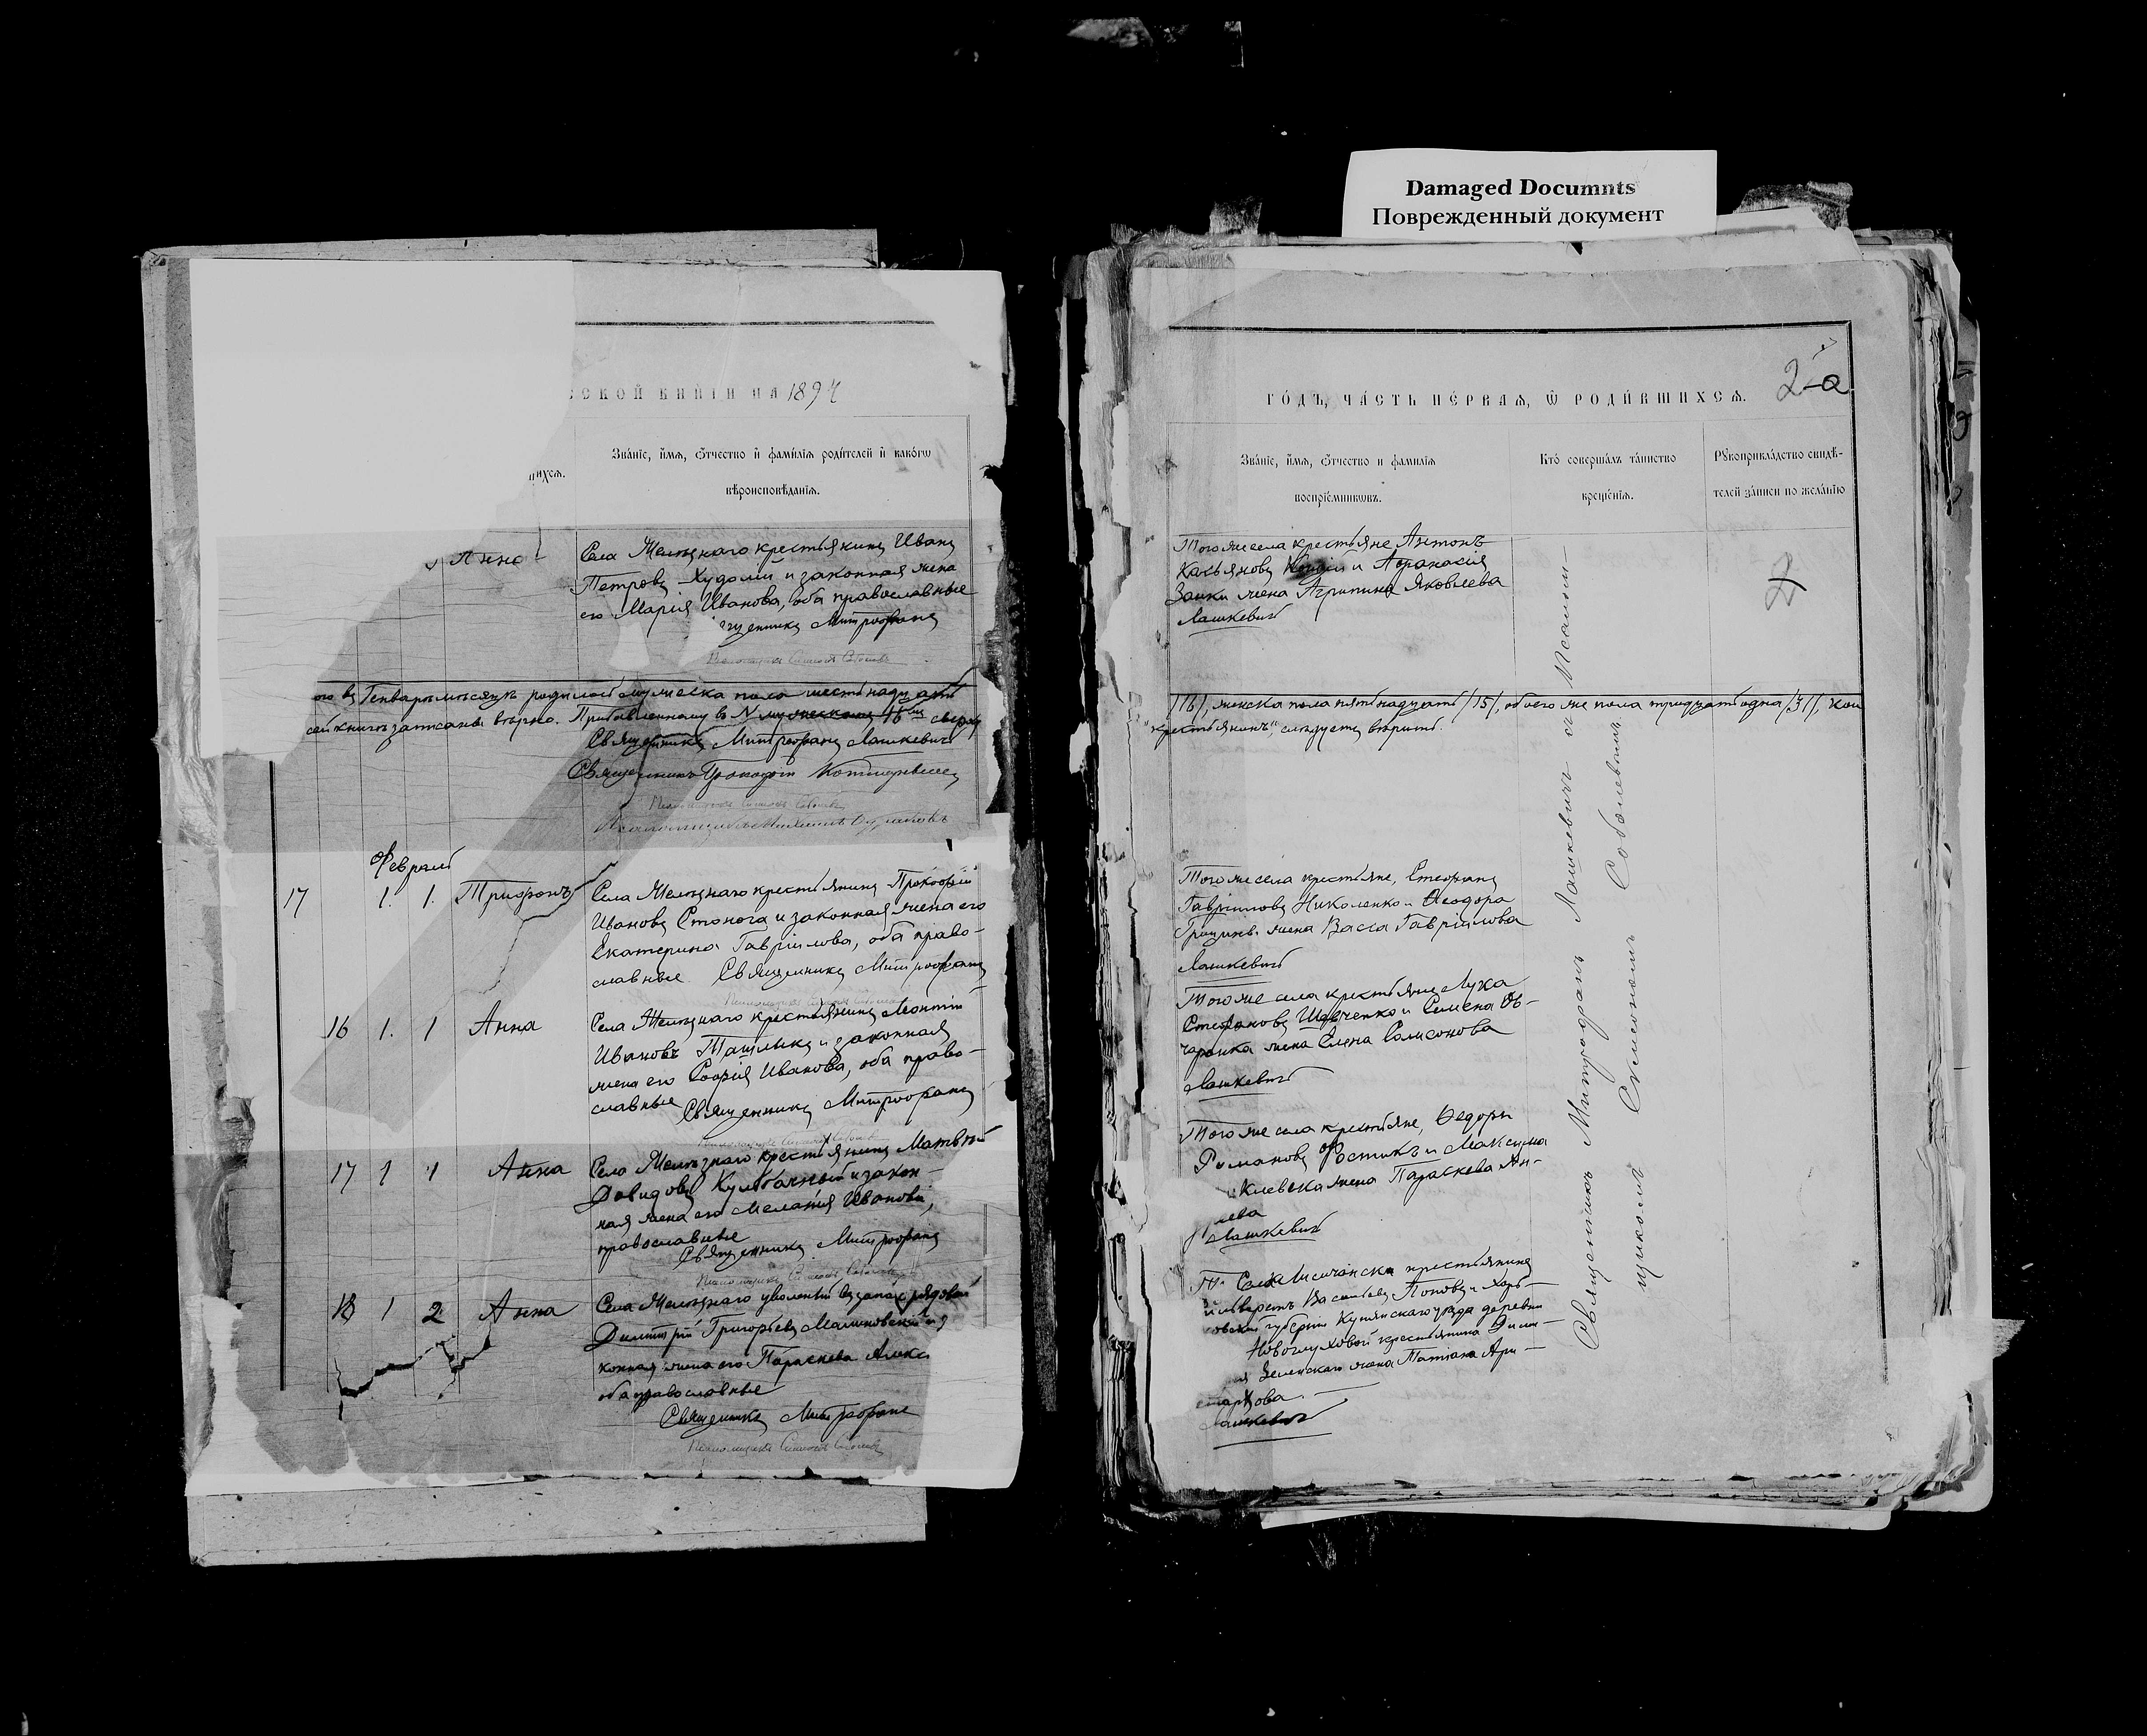 Damaged Documnts
Поврежденный документ
СКОЙ КНИГИ НА 1894
щихся.
Званіе, имя, отчество и фамилія родителей и какого
вѣроисповѣданія.
Анна
Села Желѣзнаго крестьянинъ Иванъ
Петровъ Худолий и законная жена
его Марія Иванова, оба православные
Митрофанъ
Псаломщикъ Симеонъ Соболевъ
въ Генварѣ мѣсяцѣ родилось мужеска пола шестьнадцать
сей книгѣ записаны вѣрно. Прибавленному въ N мужескомъ 16мъ сверху
Священникъ Митрофанъ Лашкевичъ
Священникъ
Псаломщикъ Симеонъ Соболевъ
Псаломщикъ
Февраль
17 1. 1. Трифонъ
Села Желѣзнаго крестьянинъ Прокофій
Ивановъ Стонога и законная жена его
Екатерина Гавріилова, оба право-
славные Священникъ Митрофанъ
Псаломщикъ Симеонъ Соболевъ
16 1. 1 Анна
Села Желѣзнаго крестьянинъ Леонтій
Ивановъ Ташлыкъ и законная
жена его Софія Иванова, оба право-
славные Священникъ Митрофанъ
Псаломщикъ Симеонъ Соболевъ
17 1 1 Анна
Села Желѣзнаго крестьянинъ Матвѣй
Давидовъ Кулбачный и закон-
ная жена его Меланія Иванова,
православные
Священникъ Митрофанъ
Псаломщикъ Симеонъ Соболевъ
18 1 2 Анна
Села Желѣзнаго уволенный въ запасъ рядовой
Димитрій Григорьевъ Малиновскій и з
конная жена его Параскева Алекс
оба православные
Священникъ Митрофанъ
Псаломщикъ Симеонъ Соболевъ
2-а
ГОДЪ, ЧАСТЬ ПЕРВАЯ, Ѿ РОДИВШИХСЯ.
Званіе, имя, отчество и фамилія
воспріемниковъ.
Кто совершалъ таинство
крещенія.
Рукоприкладство свидѣ-
телей записи по желанію
Того же села крестьяне Антонъ
Касьяновъ и Афанасія
Заики жена Агрипина Яковлева
Лашкевичъ
2
/16/, женска пола пятьнадцать /15/, обоего же пола тридцать одна /31/, кои
"крестьянинъ", слѣдуетъ вѣрить.
Того же села крестьяне, Стефанъ
Гавріиловъ Николенко и Феодора
жена Васса Гавріилова
Лашкевичъ
Того же села крестьяне Лука
Стефановъ Шевченко и Семена Ов-
чаренка жена Елена Самсонова
Лашкевичъ
Того же села крестьяне, Федоръ
Романовъ Фостикъ и Максима
жена Параскева Ан-
Лашкевичъ
Села Лисичанска крестьянинъ
Васильевъ Поповъ и Харь-
ковской губерніи Купянскаго уѣзда деревни
крестьянина Дими-
Зеленскаго жена Татіана Ари-
стархова
Лашкевичъ
Священникъ Митрофанъ Лашкевичъ съ Псалом-
щикомъ Симеономъ Соболевымъ